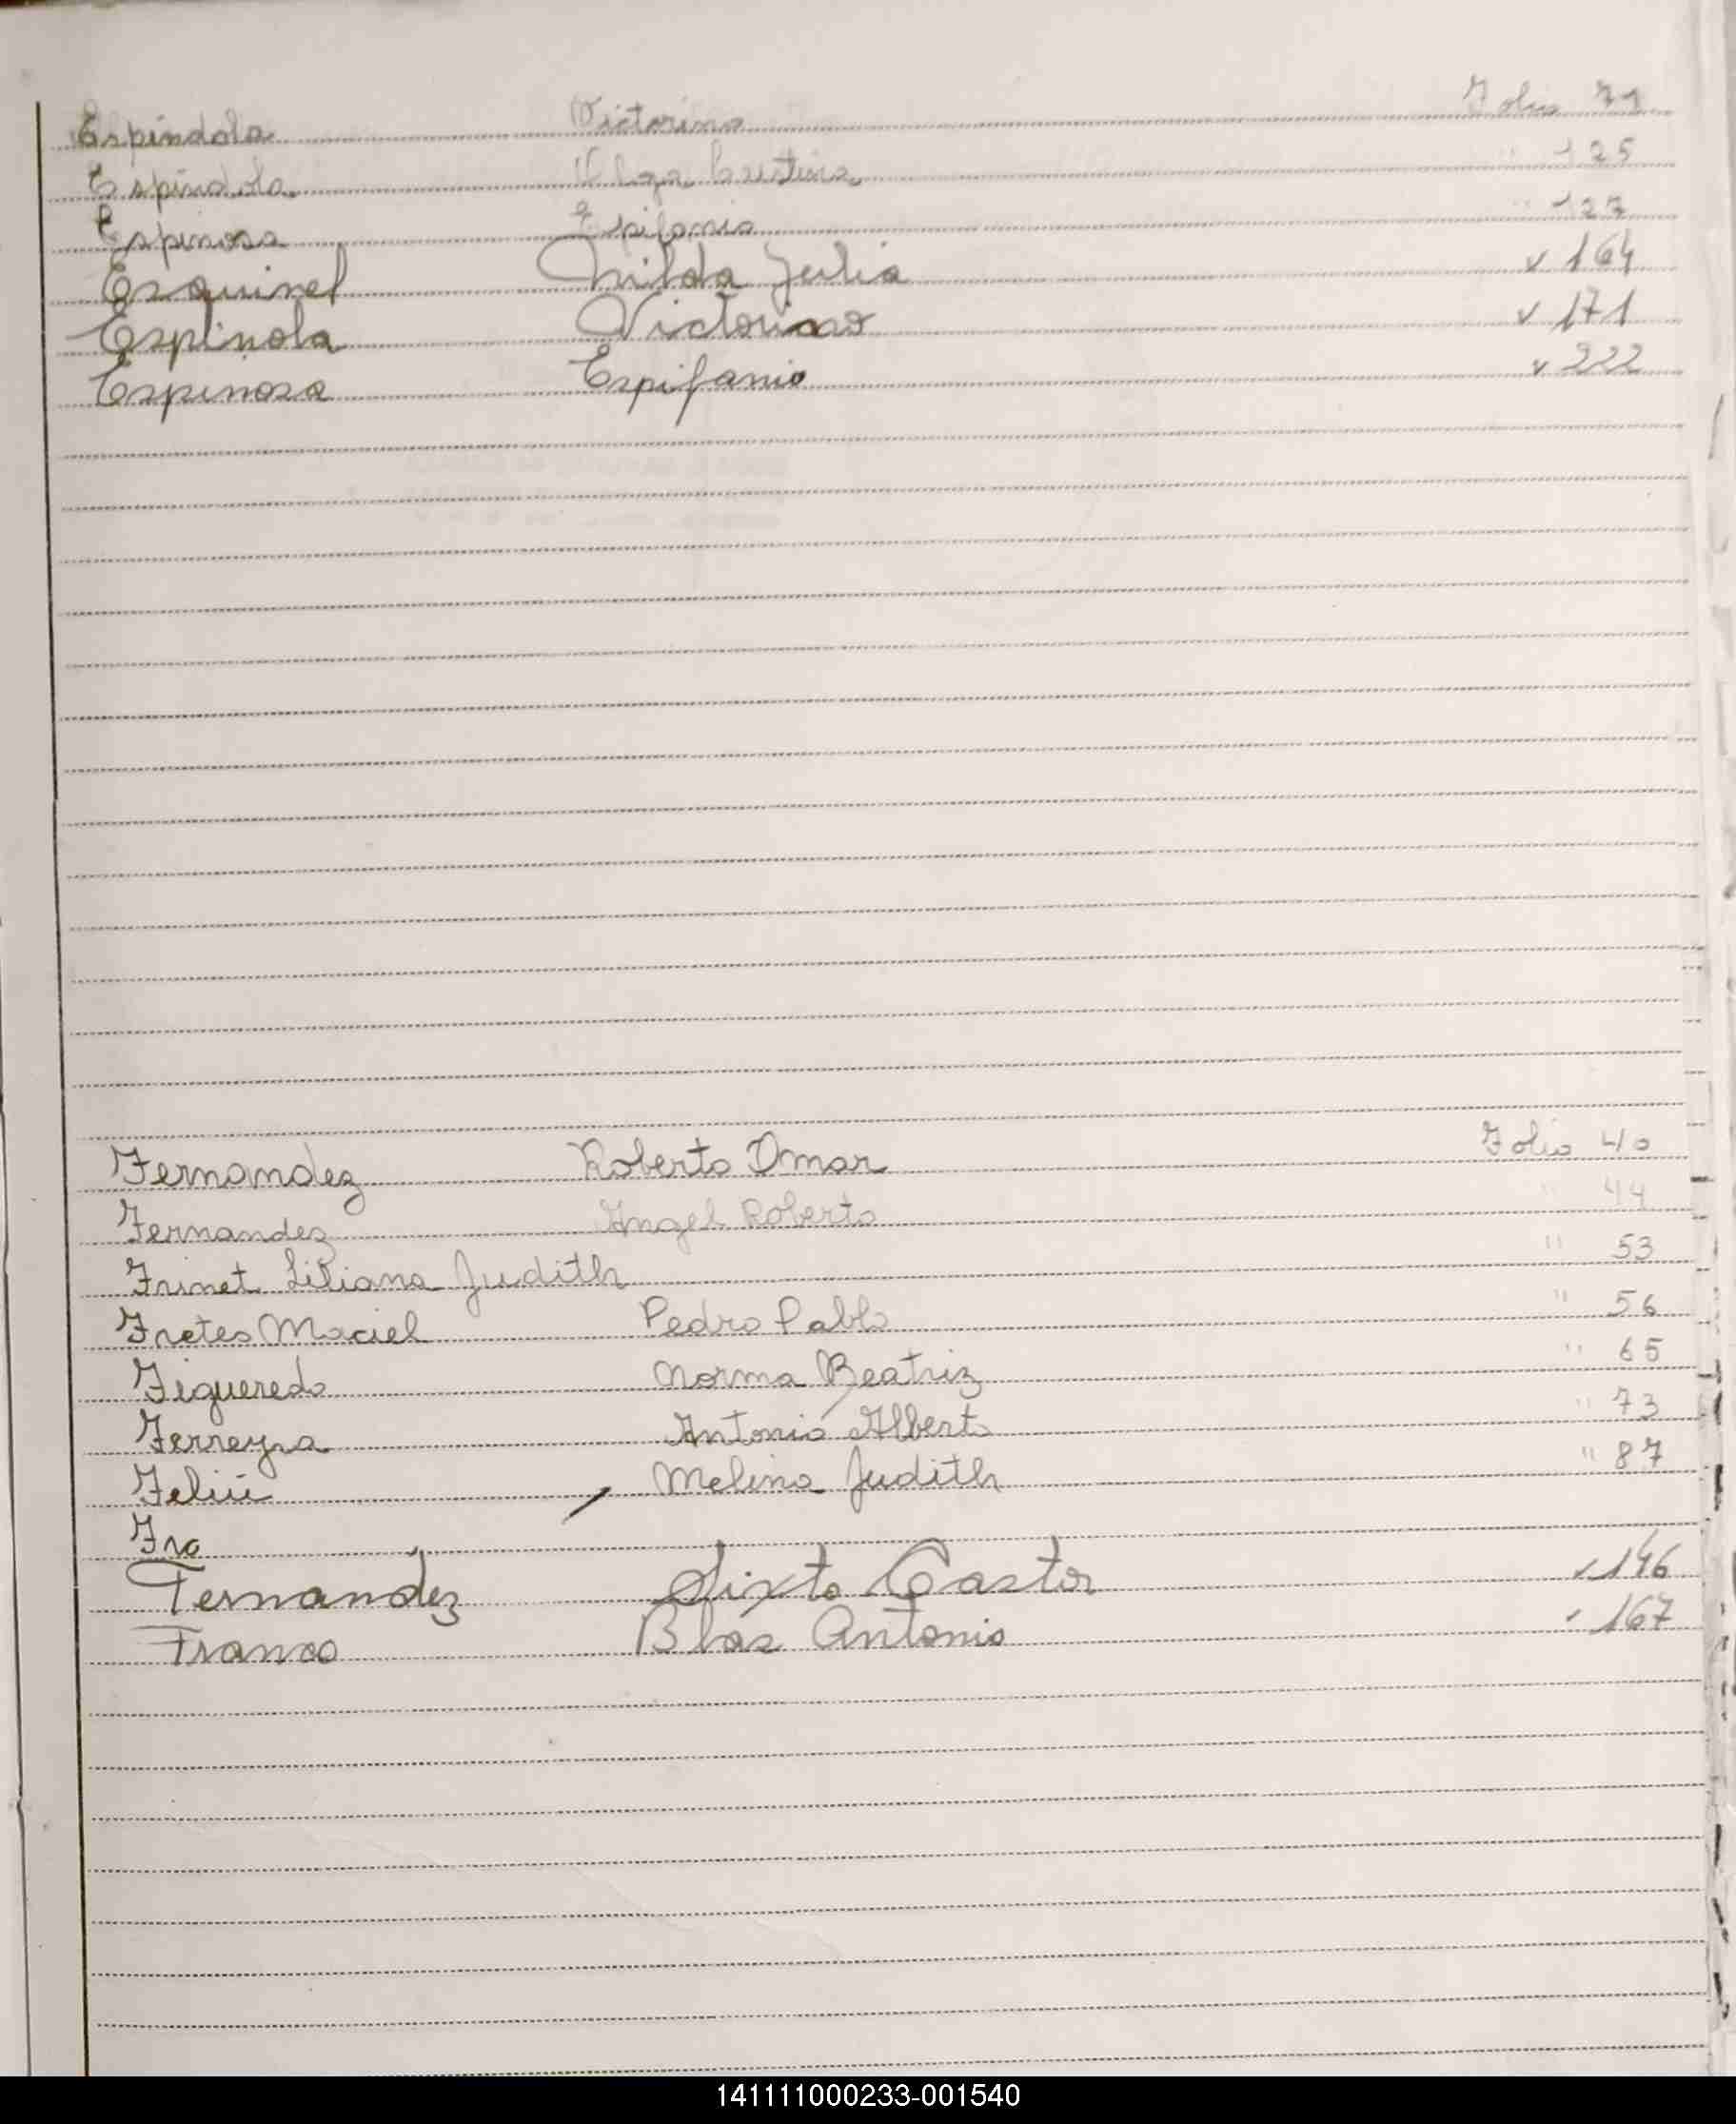 Espindola Victorino Folio 71
Espindola Olga Cristina " 125
Espinosa Epifanio " 127
Esquivel Nilda Julia v 164
Espinola Victorino v 171
Espinosa Espifanio v 222
Fernandez Roberto Omar Folio 40
Fernandez Angel Roberto " 44
Frinet Liliana Judith " 53
Fretes Maciel Pedro Pablo " 56
Figueredo Norma Beatriz " 65
Ferreyra Antonio Alberto " 73
Feliú Melina Judith " 87
Fra
Fernandez Sixto Castor 146
Franco Blas Antonio 167
141111000233-001540